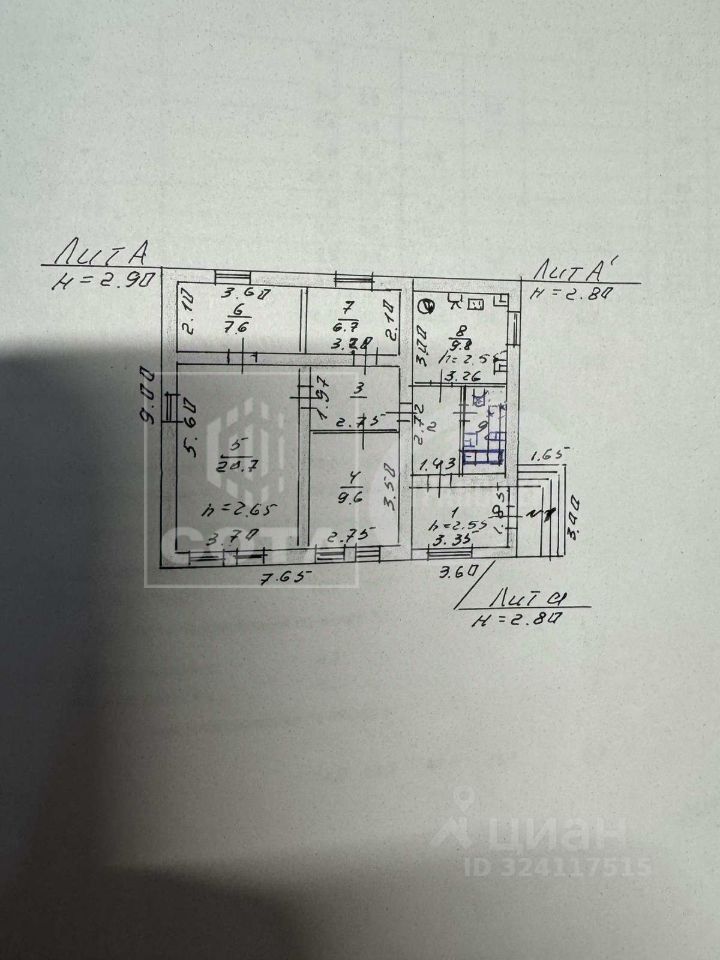 Лит А
н=2.90
Лит А'
н=2.80
3.60
6
7.6
2.10
7
6.7
2.10
3.20
8
9.8
h=2.55
3.00
3.26
9.00
5.60
5
20.7
h=2.65
3.70
1.97
3
2.75
4
9.6
3.50
2.75
2
2.72
1.43
9
1
h=2.55
3.35
1.65
3.40
7.65
3.60
Лит а
н=2.80
СОТА
циан
ID 324117515